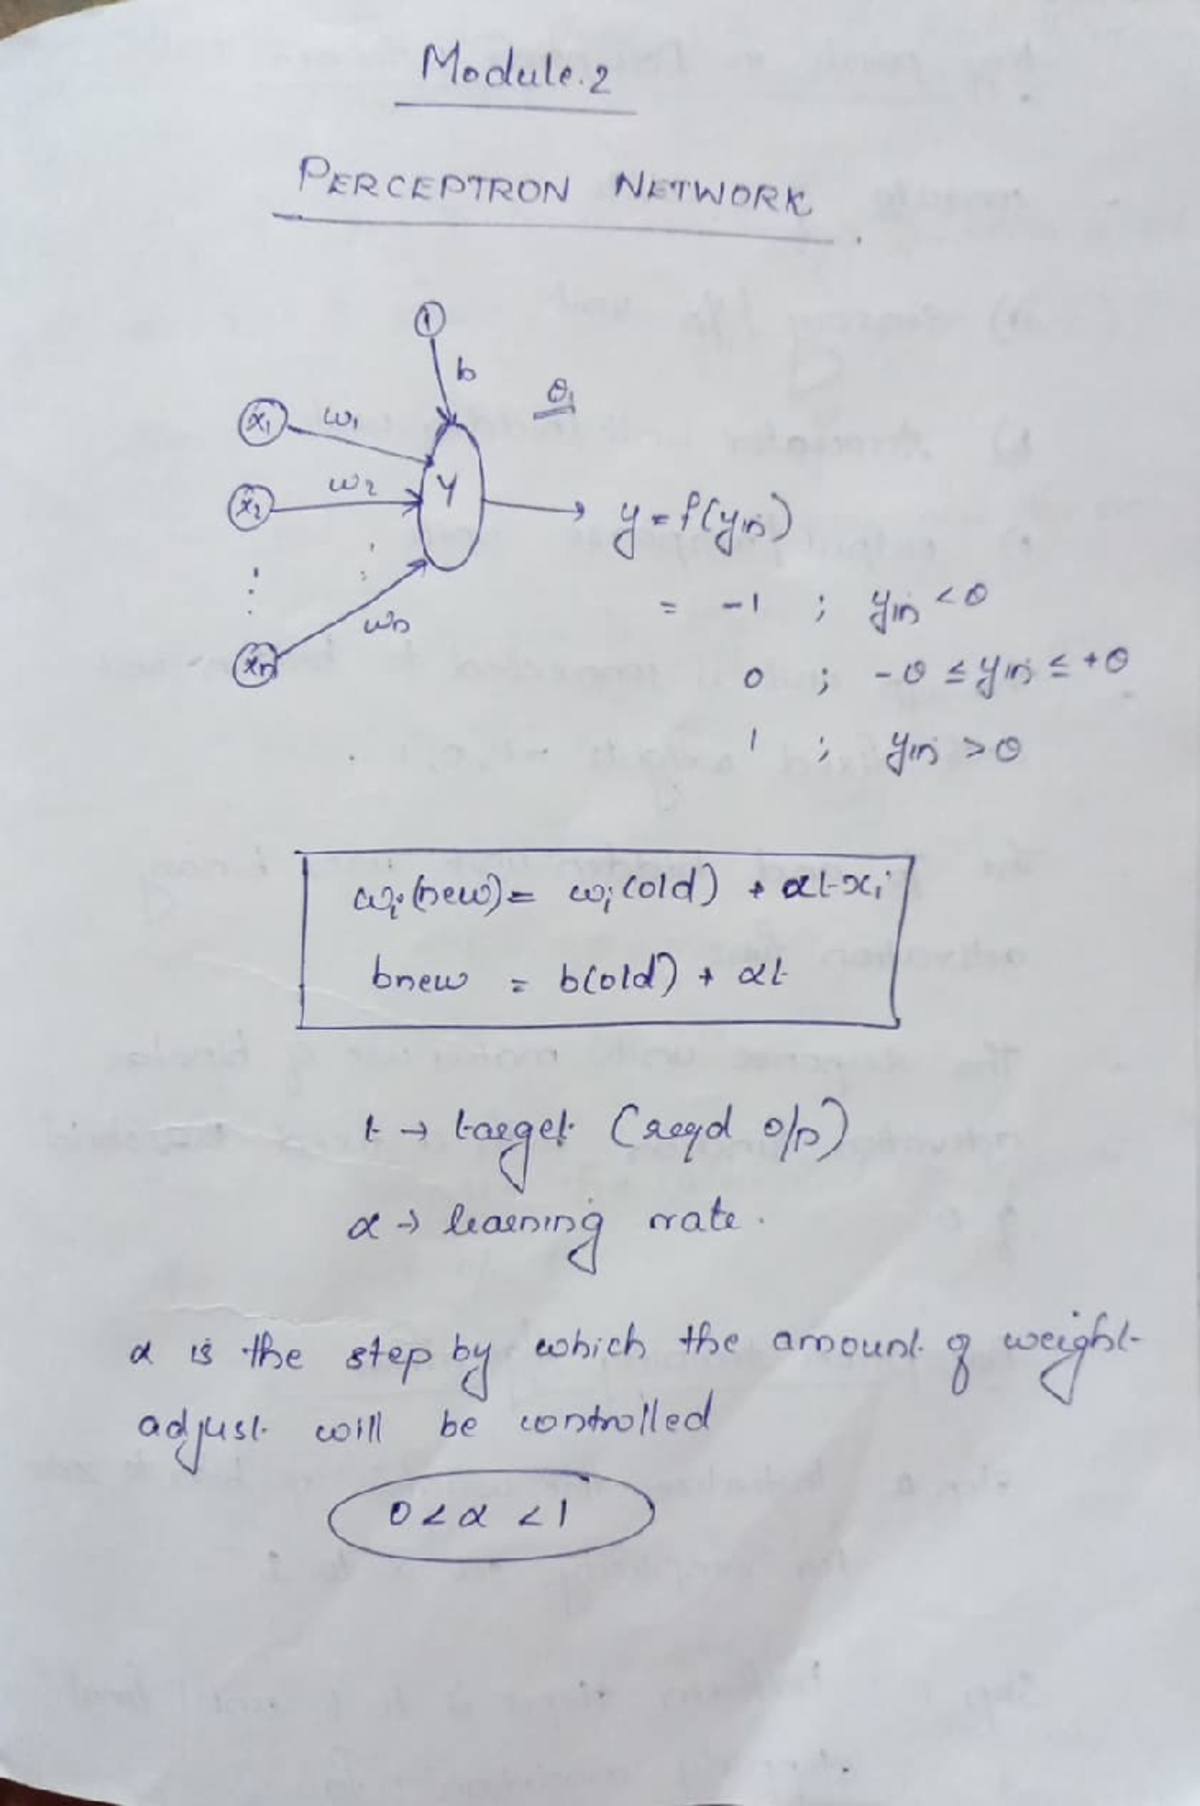 Module.2
PERCEPTRON NETWORK.
1
b
θ1
x1 w1
x2 w2 Y
y = f(yin)
= -1 ; yin < θ
wn
xn
0 ; -θ ≤ yin ≤ +θ
1 ; yin > θ
wi(new) = wi(old) + αt xi
bnew = b(old) + αt
t → target (reqd o/p)
α → learning rate.
α is the step by which the amount of weight
adjust will be controlled
0 < α < 1